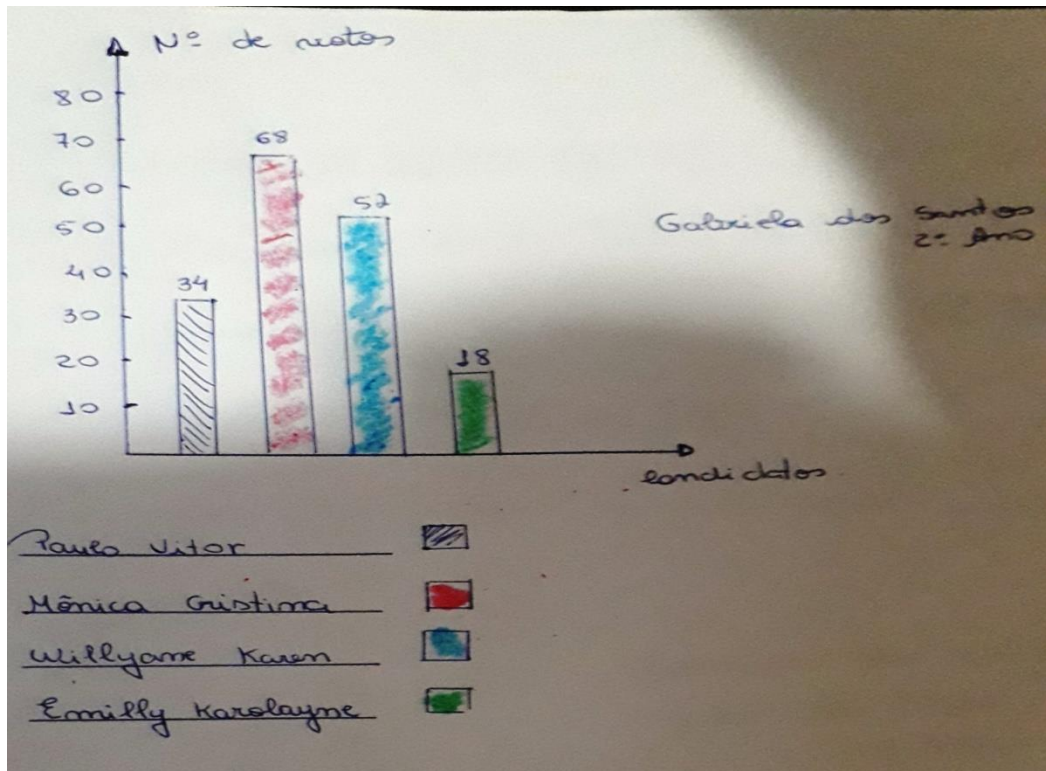 Nº de votos
80
70
60
50
40
30
20
10
34
68
52
18
Gabriela dos Santos
2º Ano
candidatos
Paulo Vitor
Mônica Cristina
Willyane Karen
Emilly Karolayne